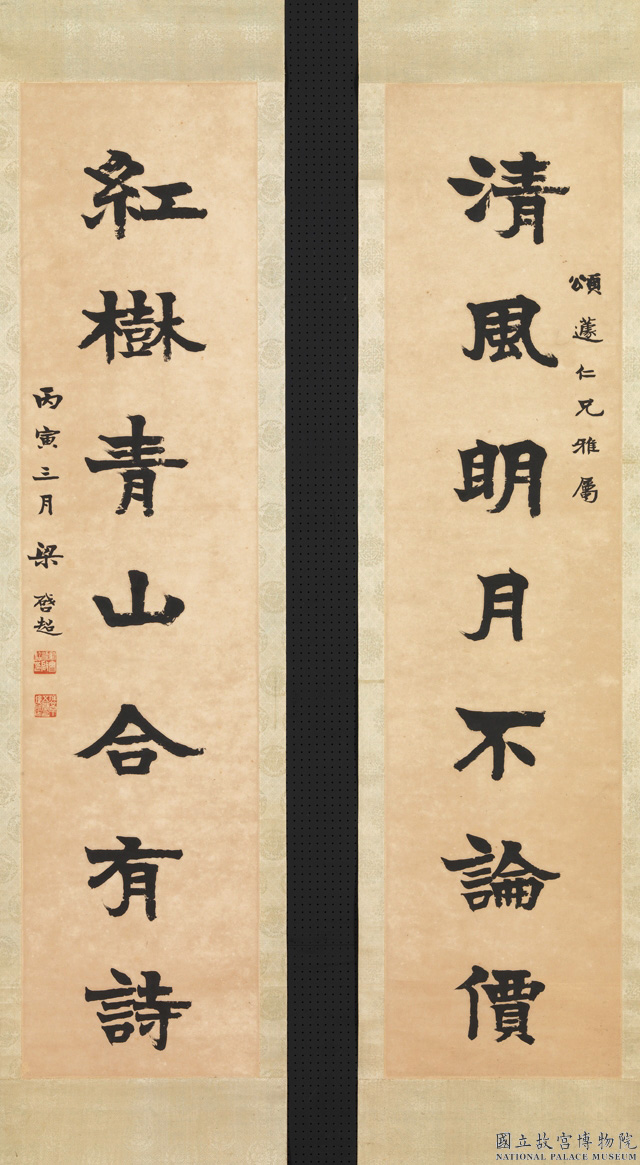 頌蘧仁兄雅屬
清風明月不論價
紅樹青山合有詩
丙寅三月 梁啓超
國立故宮博物院
NATIONAL PALACE MUSEUM